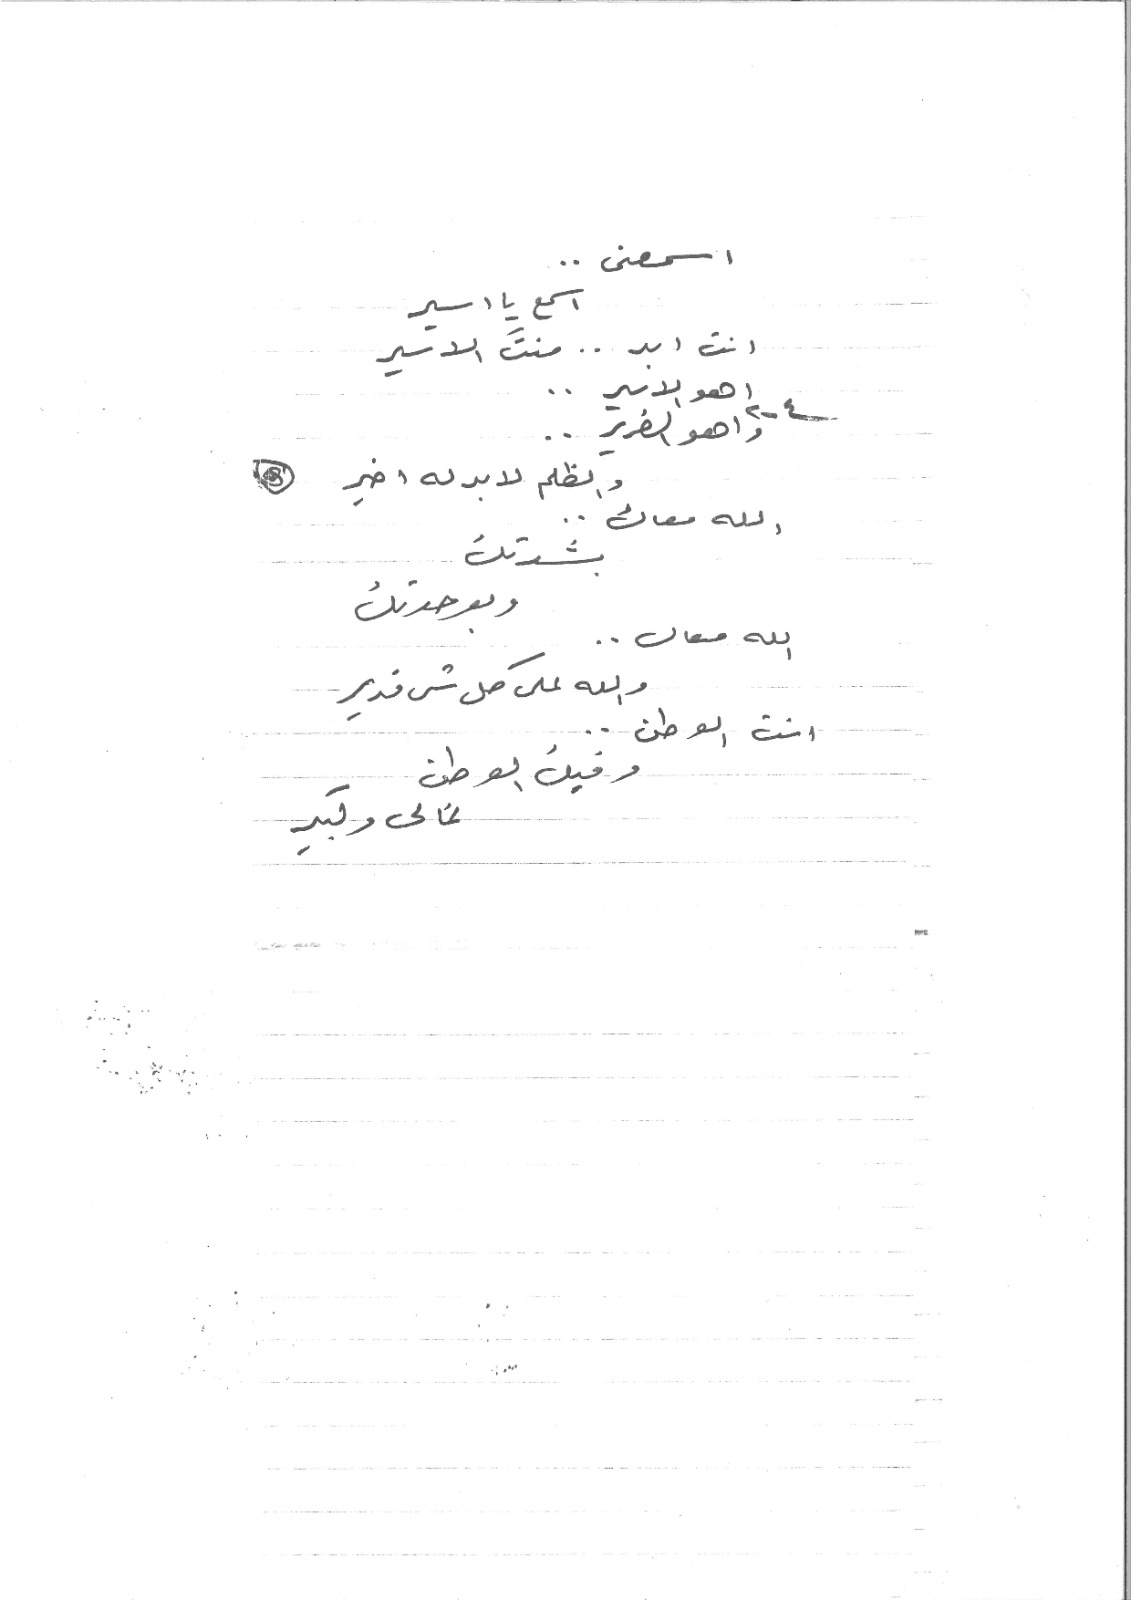 اسمعنى ..
اسمع يا اسير
انت ابد .. منتَ الاسير
اهو الاسير ..
واهو الضرير ..
والظلم لابد له اخير
الله معاك ..
بشدتك
وبوحدتك
الله معاك ..
والله على كل شى قدير
انت الوطن ..
وفيك الوطن
غالى وكبير